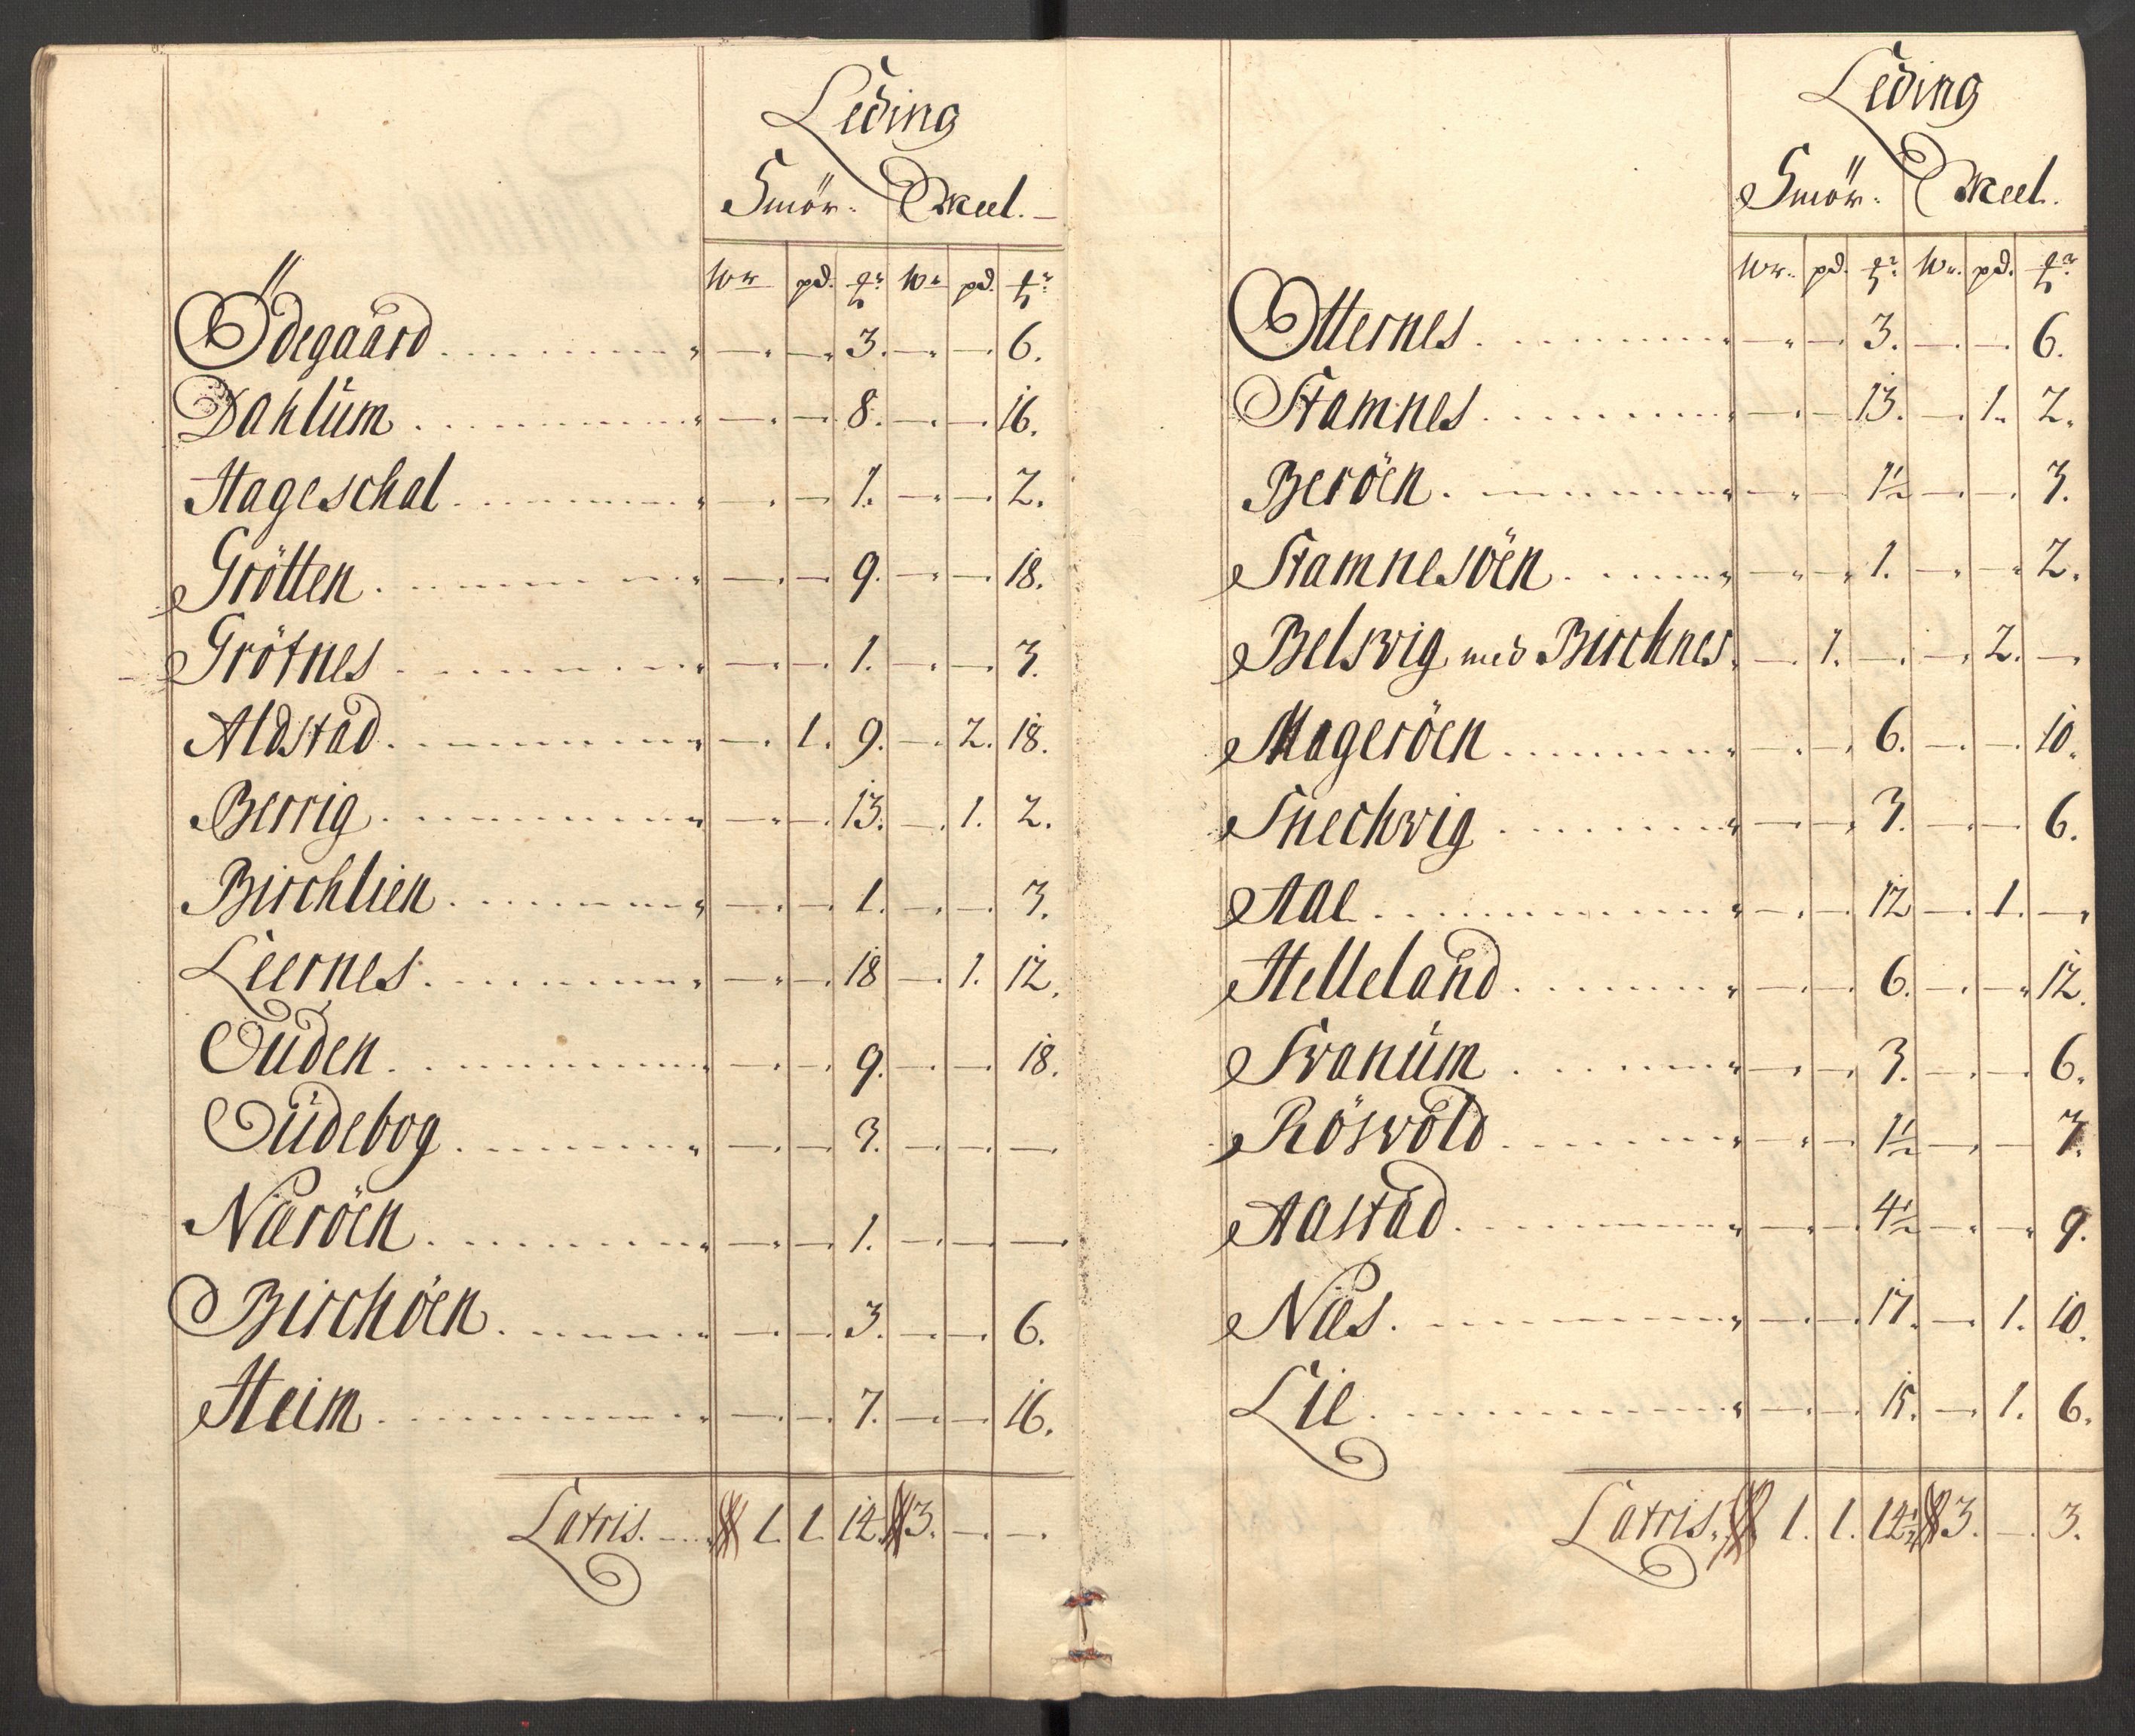 Leding
Smör. Meel.
Wr pd. ℔r Wr pd. ℔r
Ödegaard . . . — — 3. — — 6.
Dahlüm . . . — — 8. — — 16.
Hageschal . . . — — 1. — — 2.
Grötten . . . — — 9. — — 18.
Grötnes . . . — — 1. — — 3.
Aldstad . . . — 1. 9. — 2. 18.
Berrig . . . — — 13. — 1. 2.
Birchlien . . . — — 1. — — 3.
Leernes . . . — — 18 — 1. 12.
Ouden . . . — — 9. — — 18.
Oüdebog . . . — — 3. — — —
Næröen . . . — — 1. — — —
Birchöen . . . — — 3. — — 6.
Heim . . . — — 7. — — 16.
Latris. 1. 1. 12. 3. — —
Leding
Smör. Meel.
Wr. pd. ℔r Wr. pd. ℔r
Otternes . . . — — 3. — — 6.
Stamnes . . . — — 13. — 1. 2.
Beröen . . . — — 1½ — — 3.
Stamnesöen . . . — — 1. — — 2.
Belsvig med Birchnes. — 1. — — 2. —
Mageröen . . . — — 6. — — 10.
Snechvig . . . — — 3. — — 6.
Aae . . . — — 12 — 1. —
Helleland . . . — — 6. — — 12.
Svanüm . . . — — 3. — — 6.
Rösvold . . . — — 1½ — — 3.
Aastad . . . — — 4½ — — 9.
Næs . . . — — 17. — 1. 10.
Lie . . . — — 15. — 1. 6.
Latris. 1. 1. 12½ 3. — 3.